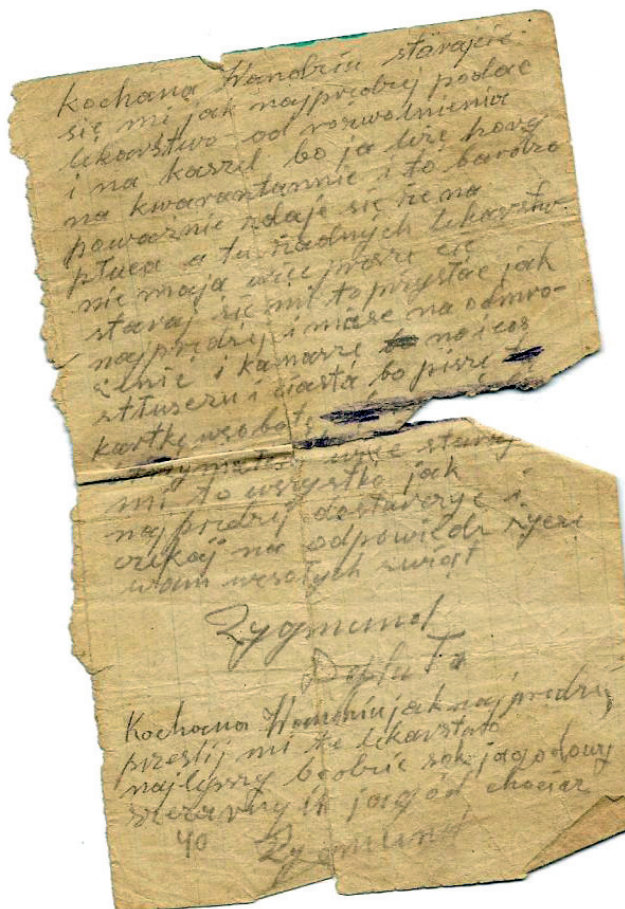 Kochana Wandziu starajcie
się mi jak najprędzej podać
lekarstwo od rozwolnienia
i na kaszel bo ja leżę hory
na kwarantannie i to bardzo
poważnie zdaje się że na
płuca a tu żadnych lekarstw
nie maja więc proszę cię
staraj się mi to przysłać jak
najprędzej i maśc na odmro-
żenie i kamasze no i coś
tłuszczu i ciasta bo piszę
kartkę w sobotę
więc staraj
mi to wszystko jak
najprędzej dostarczyć i
czekaj na odpowiedz życzę
wam wesołych świąt
Zygmund
Kochana Wandziu jak najprędzej
prześlij mi te lekarstwo
najlepszy sok jagodowy
jagód chociaż
40 Zygmund